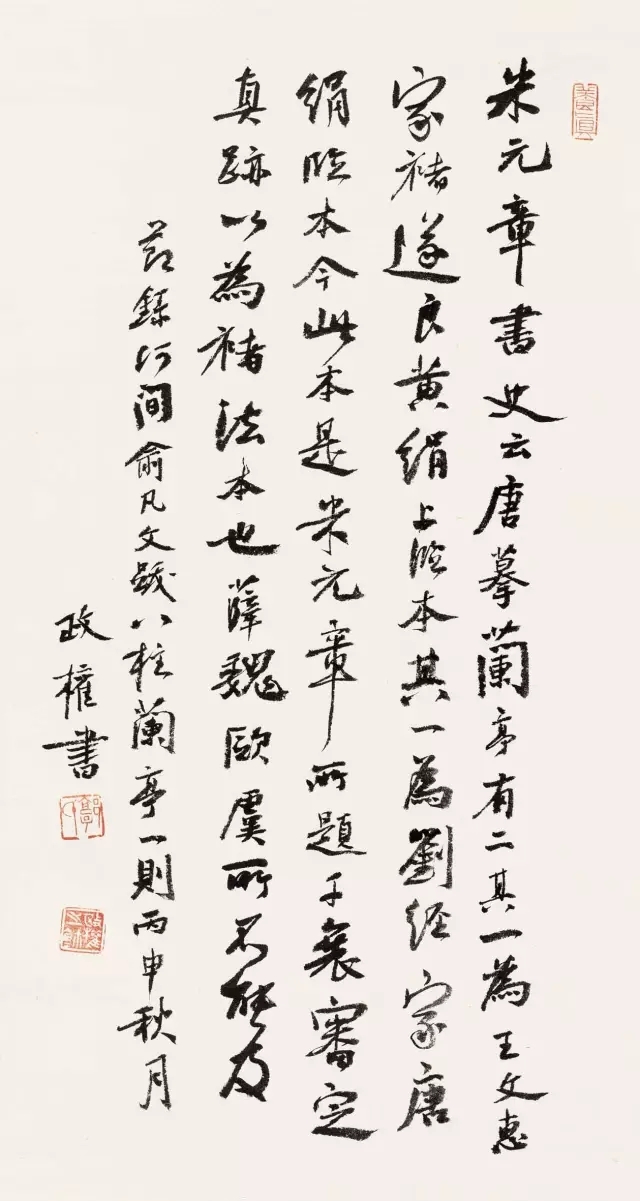 米元章書史云唐摹蘭亭有二其一為王文惠
家褚遂良黄絹上臨本其一為劉經家唐
絹臨本今此本是米元章所題子襄審定
真跡以為褚法本也薛魏歐虞所不能及
節錄河間俞凡文跋八柱蘭亭一則丙申秋月
政權書